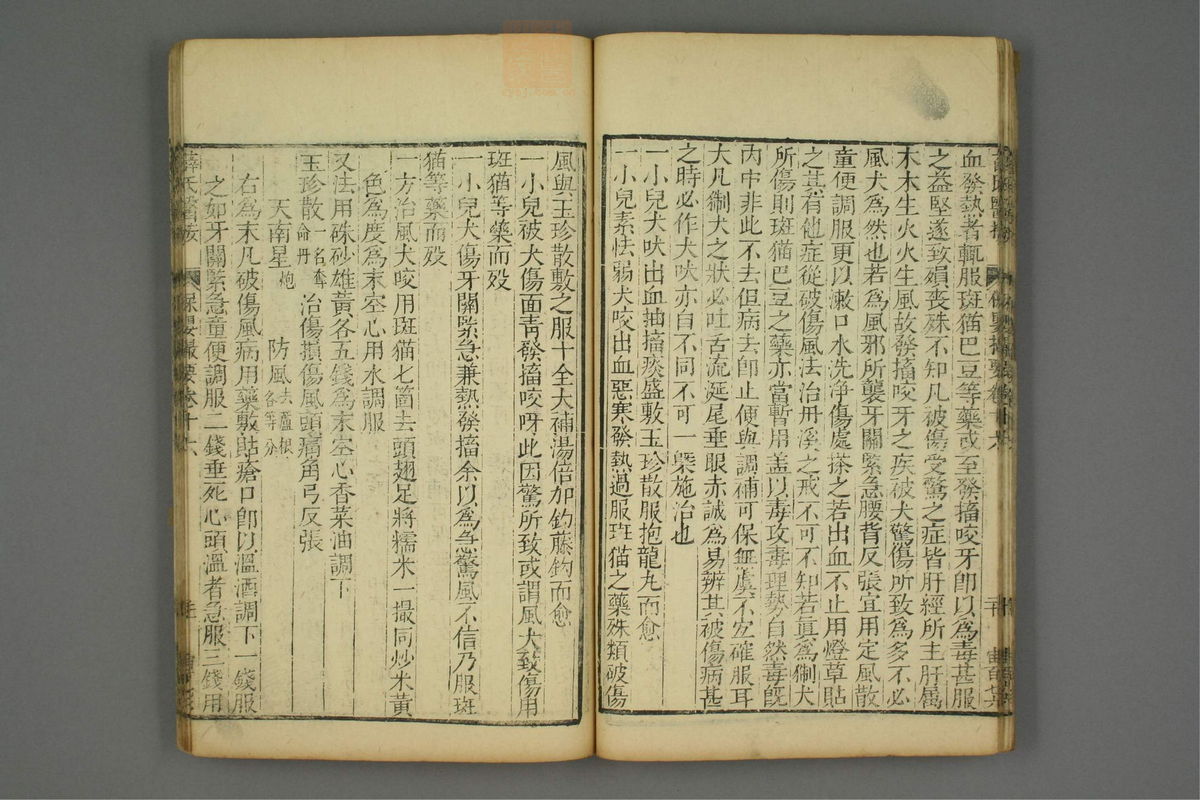 血發熱者輒服斑猫巴豆等藥或至發搐咬牙卽以爲毒甚服
之益堅遂致殞喪殊不知凡被傷受驚之症皆肝經所主肝屬
木木生火火生風故發搐咬牙之疾被犬驚傷所致爲多不必
風犬爲然也若爲風邪所襲牙關緊急腰背反張宜用定風散
童便調服更以漱口水洗淨傷處搽之若出血不止用燈草貼
之其有他症從破傷風法治丹溪之戒不可不知若眞爲猘犬
所傷則斑猫巴豆之藥亦當暫用盖以毒攻毒理勢自然毒旣
內中非此不去但病去卽止便與調補可保無虞不宜確服耳
大凡猘犬之狀必吐舌流涎尾垂眼赤誠爲易辨其被傷病甚
之時必作犬吠亦自不同不可一槩施治也
一小兒犬吠出血抽搐痰盛敷玉珍散服抱龍丸而愈
一小兒素怯弱犬咬出血惡寒發熱過服斑猫之藥殊類破傷
風與玉珍散敷之服十全大補湯倍加鈎藤鈎而愈
一小兒被犬傷面靑發搐咬呀此因驚所致或謂風犬致傷用
斑猫等藥而殁
一小兒犬傷牙關緊急兼熱發搐余以爲急驚風不信乃服斑
猫等藥而殁
一方治風犬咬用斑猫七箇去頭翅足將糯米一撮同炒米黃
色爲度爲末空心用水調服
又法用硃砂雄黃各五錢爲末空心香菜油調下
玉珍散一名奪命丹 治傷損傷風頭痛角弓反張
天南星炮 防風去蘆根各等分
右爲末凡破傷風病用藥敷貼瘡口卽以溫酒調下一錢服
之如牙關緊急童便調服二錢垂死心頭溫者急服三錢用
薛氏醫按 保嬰撮要卷十六